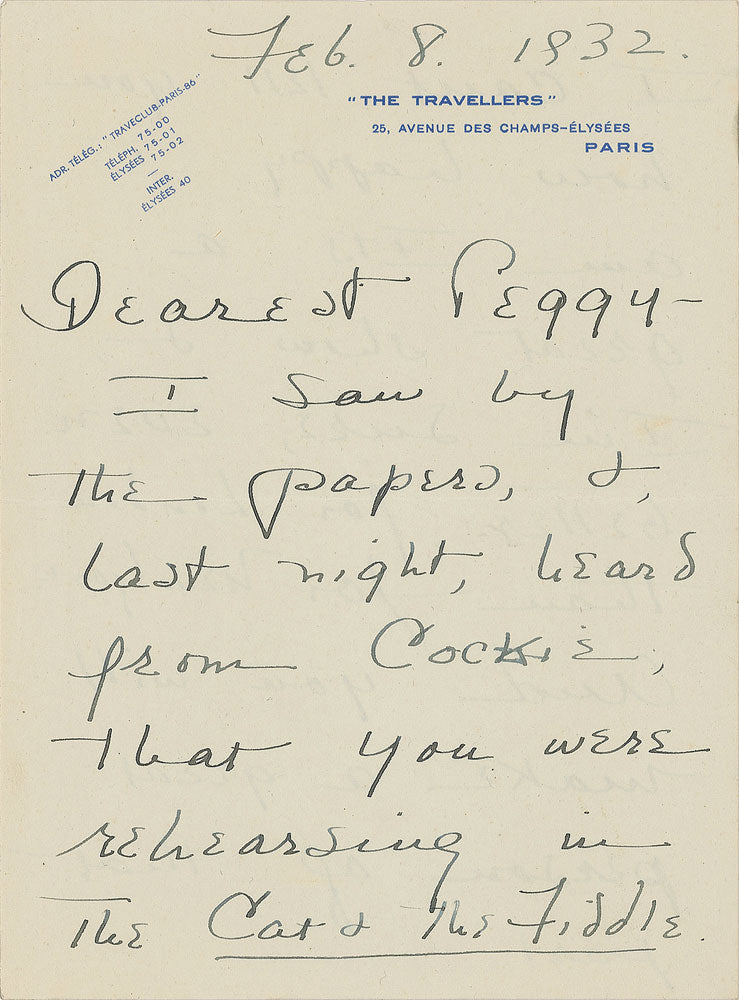 Feb. 8. 1932.
"THE TRAVELLERS"
25, AVENUE DES CHAMPS-ÉLYSÉES
PARIS
ADR. TÉLÉG.: "TRAVECLUB-PARIS-86"
TÉLÉPH. 75-00
ÉLYSÉES 75-01
75-02
INTER.
ÉLYSÉES 40
Dearest Peggy-
I saw by
the papers, &,
last night, heard
from Cockie,
that you were
rehearsing in
The Cat & the Fiddle.